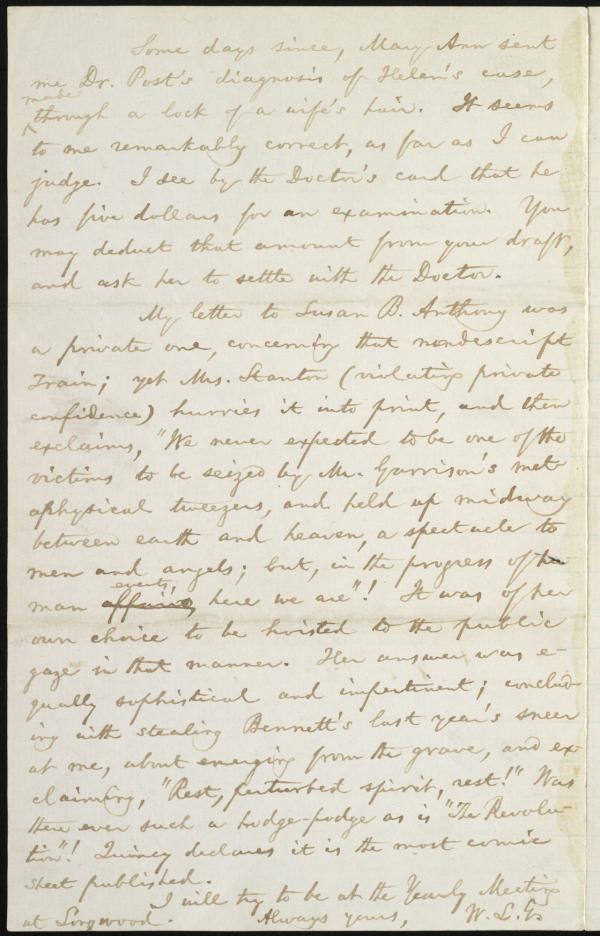 Some days since, Mary Ann sent
me Dr. Post's diagnosis of Helen's case,
made
through a lock of a wife's hair. It seems
to me remarkably correct, as far as I can
judge. I see by the Doctor's card that he
has five dollars for an examination. You
may deduct that amount from your draft,
and ask her to settle with the Doctor.
My letter to Susan B. Anthony was
a private one, concerning that nondescript
Train; yet Mrs. Stanton (violating private
confidence) hurries it into print, and then
exclaims, "We never expected to be one of the
victims to be seized by Mr. Garrison's met-
aphysical tweezers, and held up midway
between earth and heaven, a spectacle to
men and angels; but, in the progress of hu-
events,
man affairs, here we are"! It was of her
own choice to be hoisted to the public
gaze in that manner. Her answer was e-
qually sophistical and impertinent; conclud-
ing with stealing Bennett's last year's sneer
at me, about emerging from the grave, and ex-
claiming, "Rest, perturbed spirit, rest!" Was
there ever such a hodge-podge as is "The Revolu-
tion"! Quincy declares it is the most comic
sheet published.
I will try to be at the Yearly Meeting
at Longwood. Always yours, W. L. G.